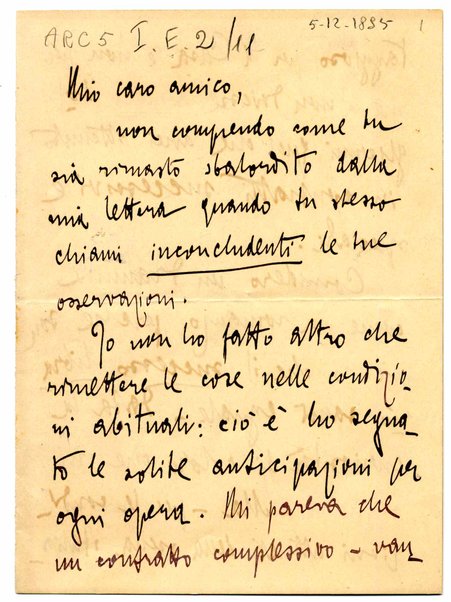 ARC 5 I. E. 2/11
5-12-1895 1
Mio caro amico,
non comprendo come tu
sia rimasto sbalordito dalla
mia lettera quando tu stesso
chiami inconcludenti le tue
osservazioni.
Io non ho fatto altro che
rimettere le cose nelle condizio-
ni abituali: ciò è ho segna-
to le solite anticipazioni per
ogni opera. Mi pareva che
un contratto complessivo - van-